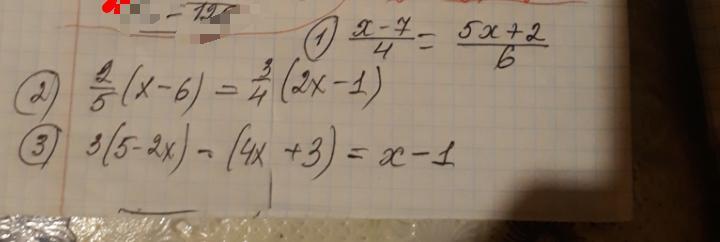 1) (x-7)/4 = (5x+2)/6
2) 2/5 (x-6) = 3/4 (2x-1)
3) 3(5-2x) - (4x+3) = x-1